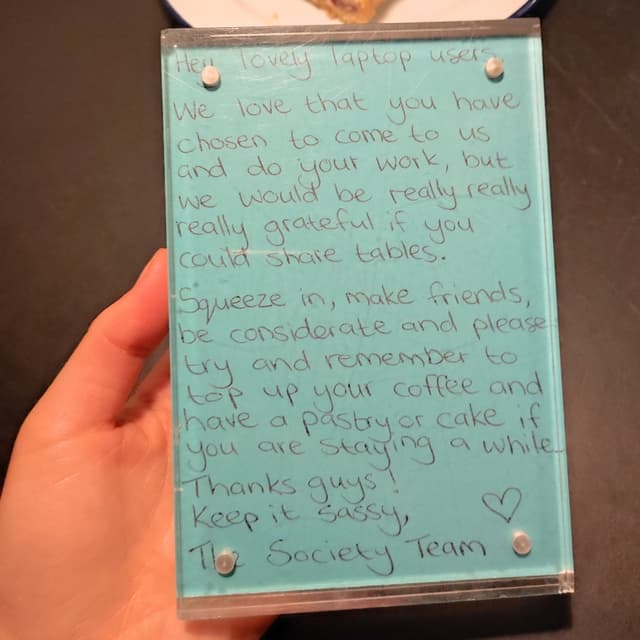 Hey lovely laptop users,
We love that you have
chosen to come to us
and do your work, but
we would be really really
really grateful if you
could share tables.
Squeeze in, make friends,
be considerate and please
try and remember to
top up your coffee and
have a pastry or cake if
you are staying a while.
Thanks guys!
Keep it sassy, ♡
The Society Team